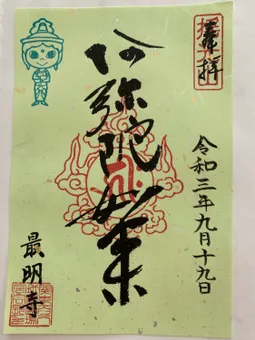 奉拝
阿弥陀如来
令和三年九月十九日
最明寺